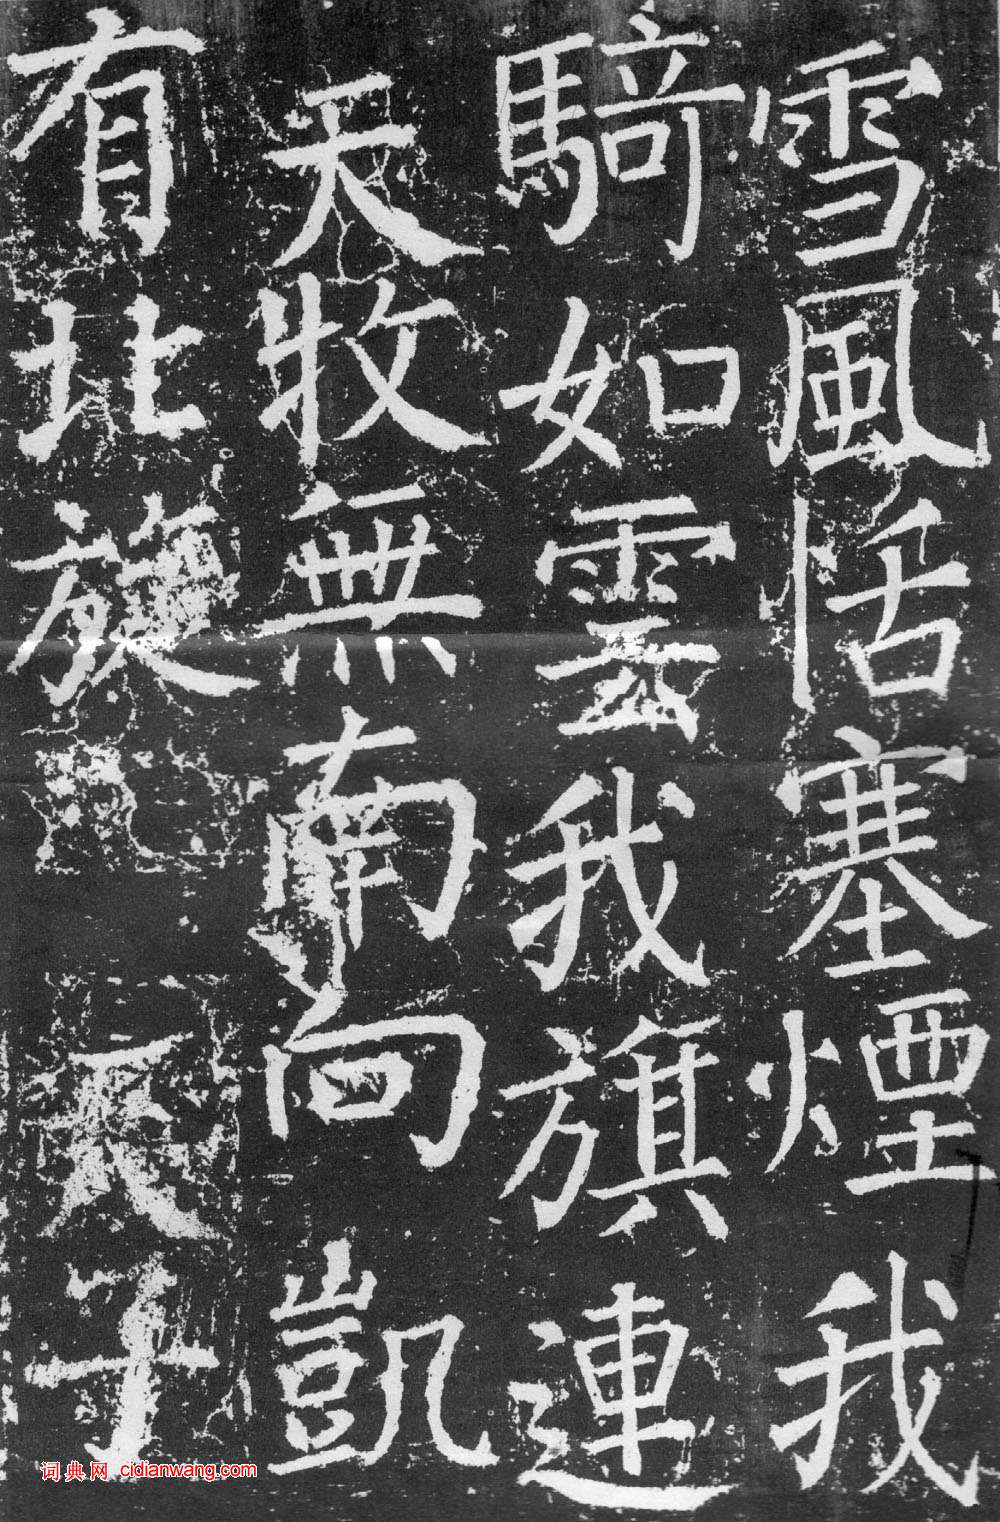 雪風恬塞煙我
騎如雲我旗連
天牧無南向凱
有北旋天子
词典网 cidianwang.com